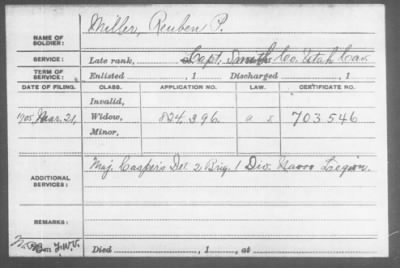 NAME OF SOLDIER: Miller, Reuben P.
SERVICE: Late rank, Capt. Smith's Co. Utah Cav
TERM OF SERVICE: Enlisted , 1 Discharged , 1
DATE OF FILING. CLASS. APPLICATION NO. LAW. CERTIFICATE NO.
Invalid,
1905, Mar. 21, Widow, 824.396 703546
Minor,
ADDITIONAL SERVICES: Maj. Casper's Det. 2 Brig. 1 Div. Nauvoo Legion.
REMARKS:
Died , 1 , at